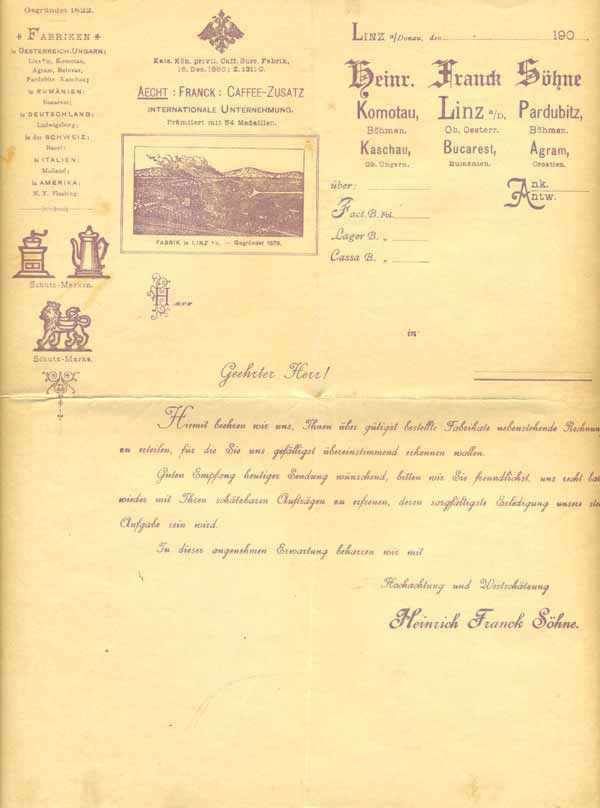 Gegründet 1822.
* FABRIKEN *
in OESTERREICH-UNGARN:
Linz a/D, Komotau,
Agram, Belovar,
Pardubitz Kaschau;
in RUMÄNIEN:
Bucarest;
in DEUTSCHLAND:
Ludwigsburg;
in der SCHWEIZ:
Basel;
in ITALIEN:
Mailand;
in AMERIKA:
N. Y. Flushing.
Schutz-Marken.
Schutz-Marke.
Kais. Kön. privil. Caff. Surr. Fabrik,
16. Dez. 1880; Z. 13110.
AECHT : FRANCK : CAFFEE-ZUSATZ
INTERNATIONALE UNTERNEHMUNG.
Prämiiert mit 54 Medaillen.
FABRIK in LINZ a/D. — Gegründet 1879.
LINZ a/Donau, den 190
Heinr. Franck Söhne
Komotau, Linz a/D, Pardubitz,
Böhmen. Ob. Oesterr. Böhmen.
Kaschau, Bucarest, Agram,
Ob. Ungarn. Rumänien. Croatien.
über:
Ank.
Antw.
Fact. B. Fol.
Lager B. „
Cassa B. „
Herr
in
Geehrter Herr!
Hiemit beehren wir uns, Ihnen über gütigst bestellte Fabrikate nebenstehende Rechnun
zu erteilen, für die Sie uns gefälligst übereinstimmend erkennen wollen.
Guten Empfang heutiger Sendung wünschend, bitten wir Sie freundlichst, uns recht bal
wieder mit Ihren schätzbaren Aufträgen zu erfreuen, deren sorgfältigste Erledigung unsere ste
Aufgabe sein wird.
In dieser angenehmen Erwartung beharren wir mit
Hochachtung und Wertschätzung
Heinrich Franck Söhne.